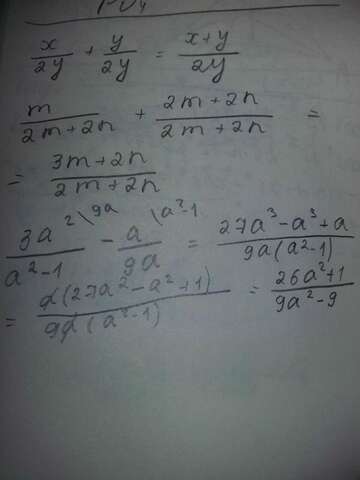 x/2y + y/2y = x+y/2y
m/2m+2n + 2m+2n/2m+2n =
= 3m+2n/2m+2n
3a²\9a/a²-1 - a\a²-1/9a = 27a³-a³+a/9a(a²-1)
= a(27a²-a²+1)/9a(a²-1) = 26a²+1/9a²-9